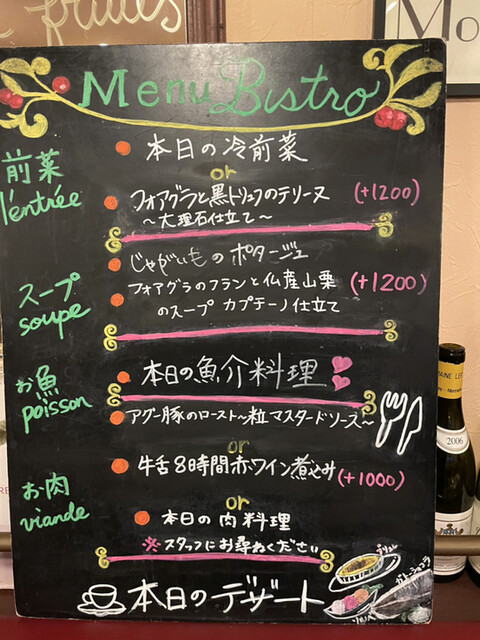 Menu Bistro
前菜
l'entrée
本日の冷前菜
or
フォアグラと黒トリュフのテリーヌ (+1200)
～大理石仕立て～
スープ
soupe
じゃがいものポタージュ
フォアグラのフランと仏産山栗 (+1200)
のスープ カプチーノ仕立て
お魚
poisson
本日の魚介料理
お肉
viande
アグー豚のロースト～粒マスタードソース～
or
牛舌8時間赤ワイン煮込み (+1000)
or
本日の肉料理
※スタッフにお尋ねください
本日のデザート
ガトーショコラ
2006